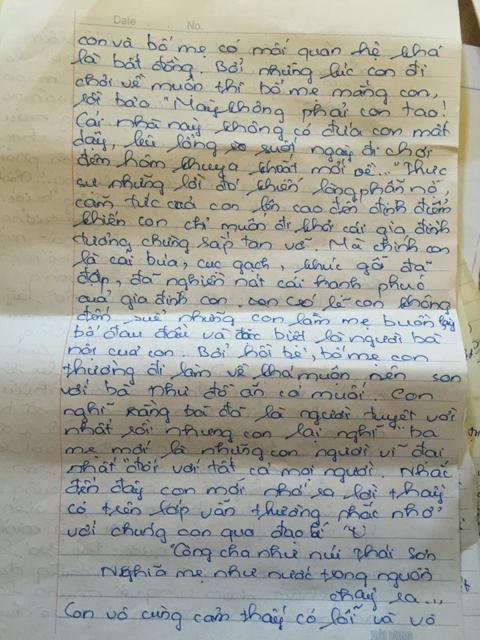 Date No.
con và bố mẹ có mối quan hệ khá
là bất đồng. Bởi những lúc con đi
chơi về muộn thì bố mẹ mắng con,
rồi bảo "Mày không phải con tao!
Cái nhà này không có đứa con mất
dậy, lêu lổng suốt ngày đi chơi
đến hôm khuya khoắt mới về..." Thực
sự những lời đó khiến lòng phẫn nộ,
căm tức của con lên cao đến đỉnh điểm
khiến con chỉ muốn đi khỏi cái gia đình
tưởng chừng sắp tan vỡ. Mà chính con
là cái búa, cục gạch, khúc gỗ đã
đập, đã nghiền nát cái hạnh phúc
của gia đình con. con cư lì con không
đến những con làm mẹ buồn
bố đau đầu và đặc biệt là người bà
nội của con. Bởi hồi bé, bố mẹ con
thường đi làm về khá muộn nên con
với bà như đồ ăn có muối. Con
nghĩ rằng bà đã là người tuyệt vời
nhất rồi nhưng con lại nghĩ ba
mẹ mới là những con người vĩ đại
nhất đối với tất cả mọi người. Nhắc
đến đây con mới nhớ ra lời thầy
cô trên lớp vẫn thường nhắc nhở
với chúng con qua đạo lí
"Công cha như núi Thái Sơn
Nghĩa mẹ như nước trong nguồn
chảy ra...
Con vô cùng cảm thấy có lỗi và vô